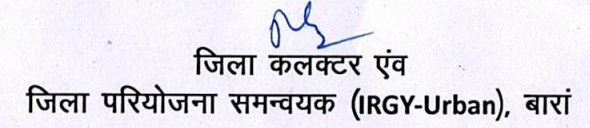 जिला कलक्टर एंव
जिला परियोजना समन्वयक (IRGY-Urban), बारां